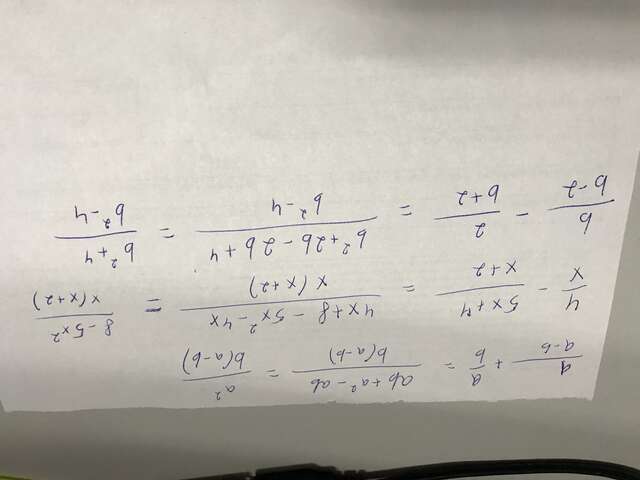 a/(a-b) + a/b = (ab+a²-ab)/(b(a-b)) = a²/(b(a-b))
4/x - (5x+4)/(x+2) = (4x+8-5x²-4x)/(x(x+2)) = (8-5x²)/(x(x+2))
b/(b-2) - 2/(b+2) = (b²+2b-2b+4)/(b²-4) = (b²+4)/(b²-4)